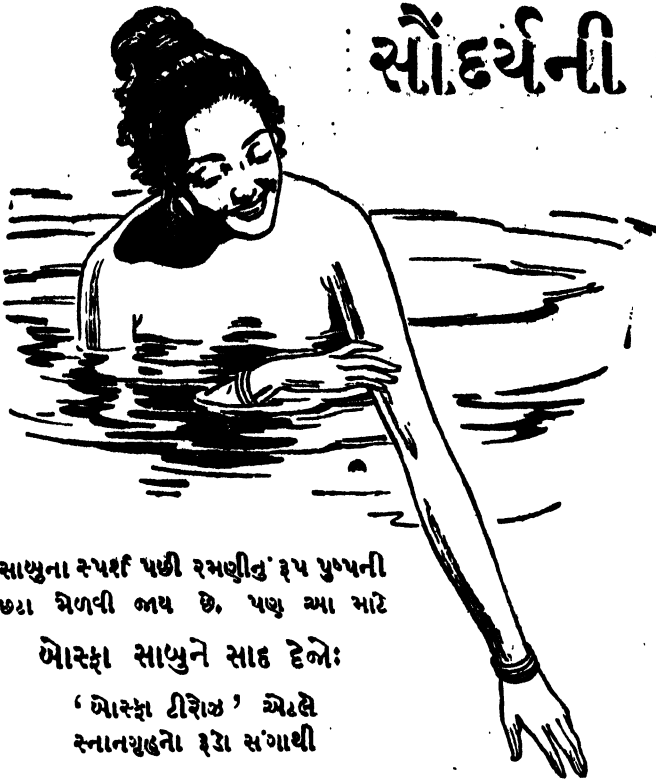 સૌંદર્યની
સાબુના સ્પર્શ પછી રમણીનું રૂપ પુષ્પની
છટા મેળવી જાય છે. પણ આ માટે
ઓસ્ફા સાબુને સાદ દેજો:
‘ઓસ્ફા ટીરોઝ’ એટલે
સ્નાનગૃહનો રૂડો સંગાથી